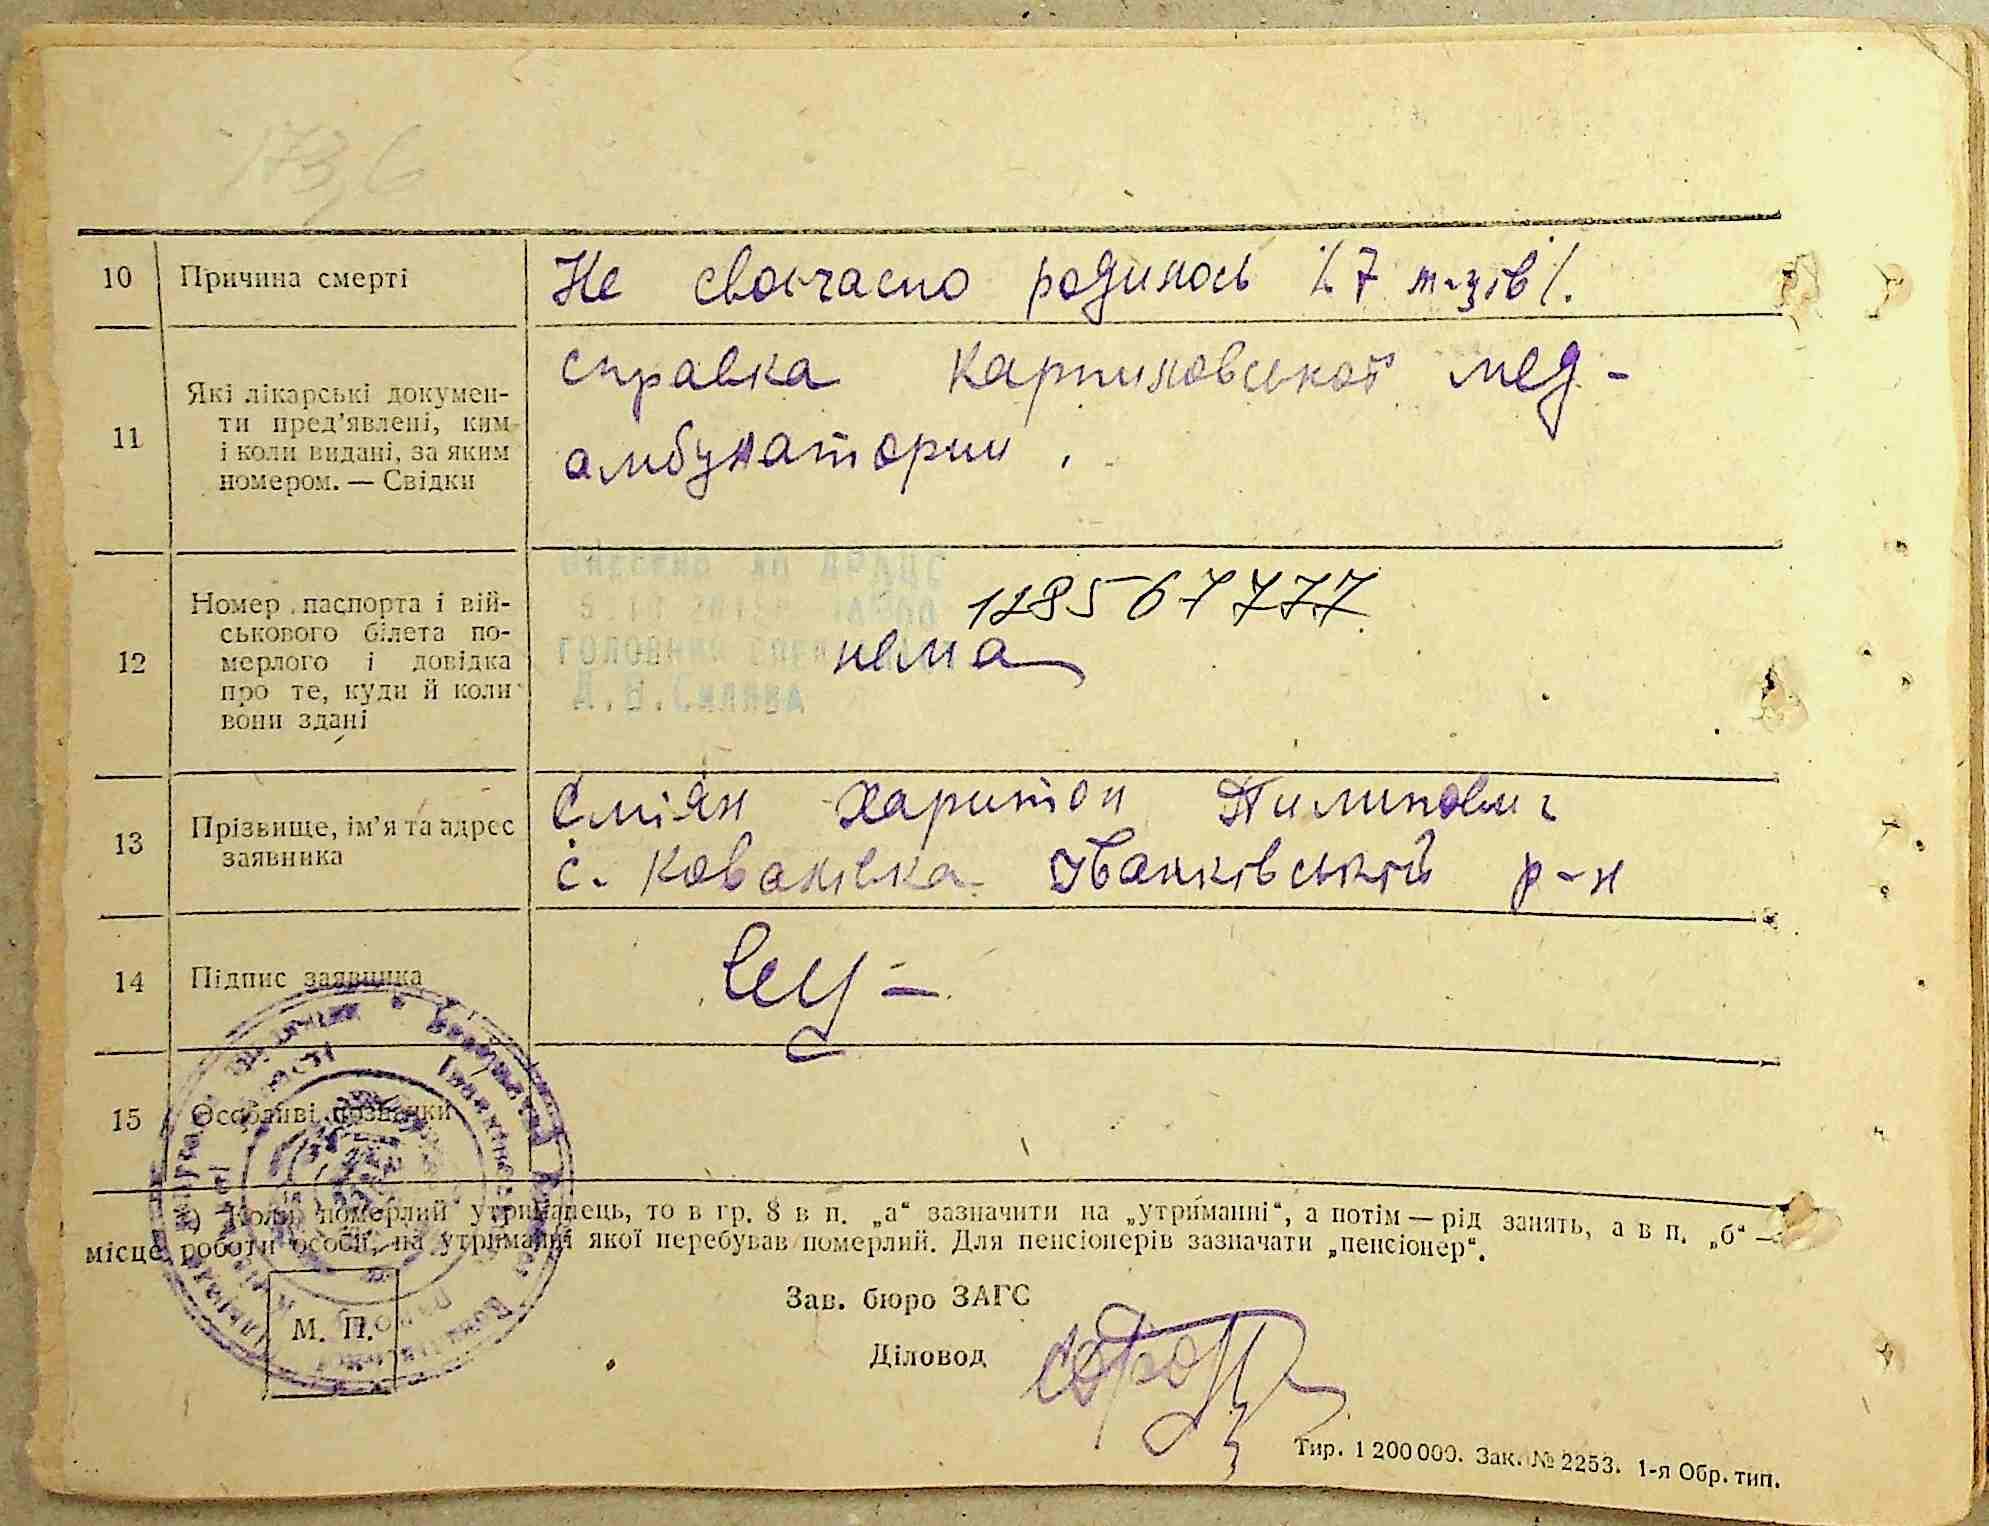 173,6
10 Причина смерті Не своєчасно родилось /. 7 м-зів /.
11 Які лікарські докумен-
ти пред'явлені, ким
і коли видані, за яким
номером. — Свідки
справка Карпиловської мед-
амбулатории.
12 Номер паспорта і вій-
ськового білета по-
мерлого і довідка
про те, куди й коли
вони здані
ВНЕСЕНО ДО ДРАЦС
ГОЛОВНИЙ
128567777
нема
13 Прізвище, ім'я та адрес
заявника
Сміян Харитон Пилипович
с. Кованівка Іванківський р-н
14 Підпис заявника
15 Особливі позначки
Коли померлий утриманець, то в гр. 8 в п. „а“ зазначити на „утриманні“, а потім — рід занять, а в п. „б“ —
місце роботи особи, на утриманні якої перебував померлий. Для пенсіонерів зазначати „пенсіонер“.
М. П.
Зав. бюро ЗАГС
Діловод
Тир. 1 200 000. Зак. № 2253. 1-я Обр. тип.